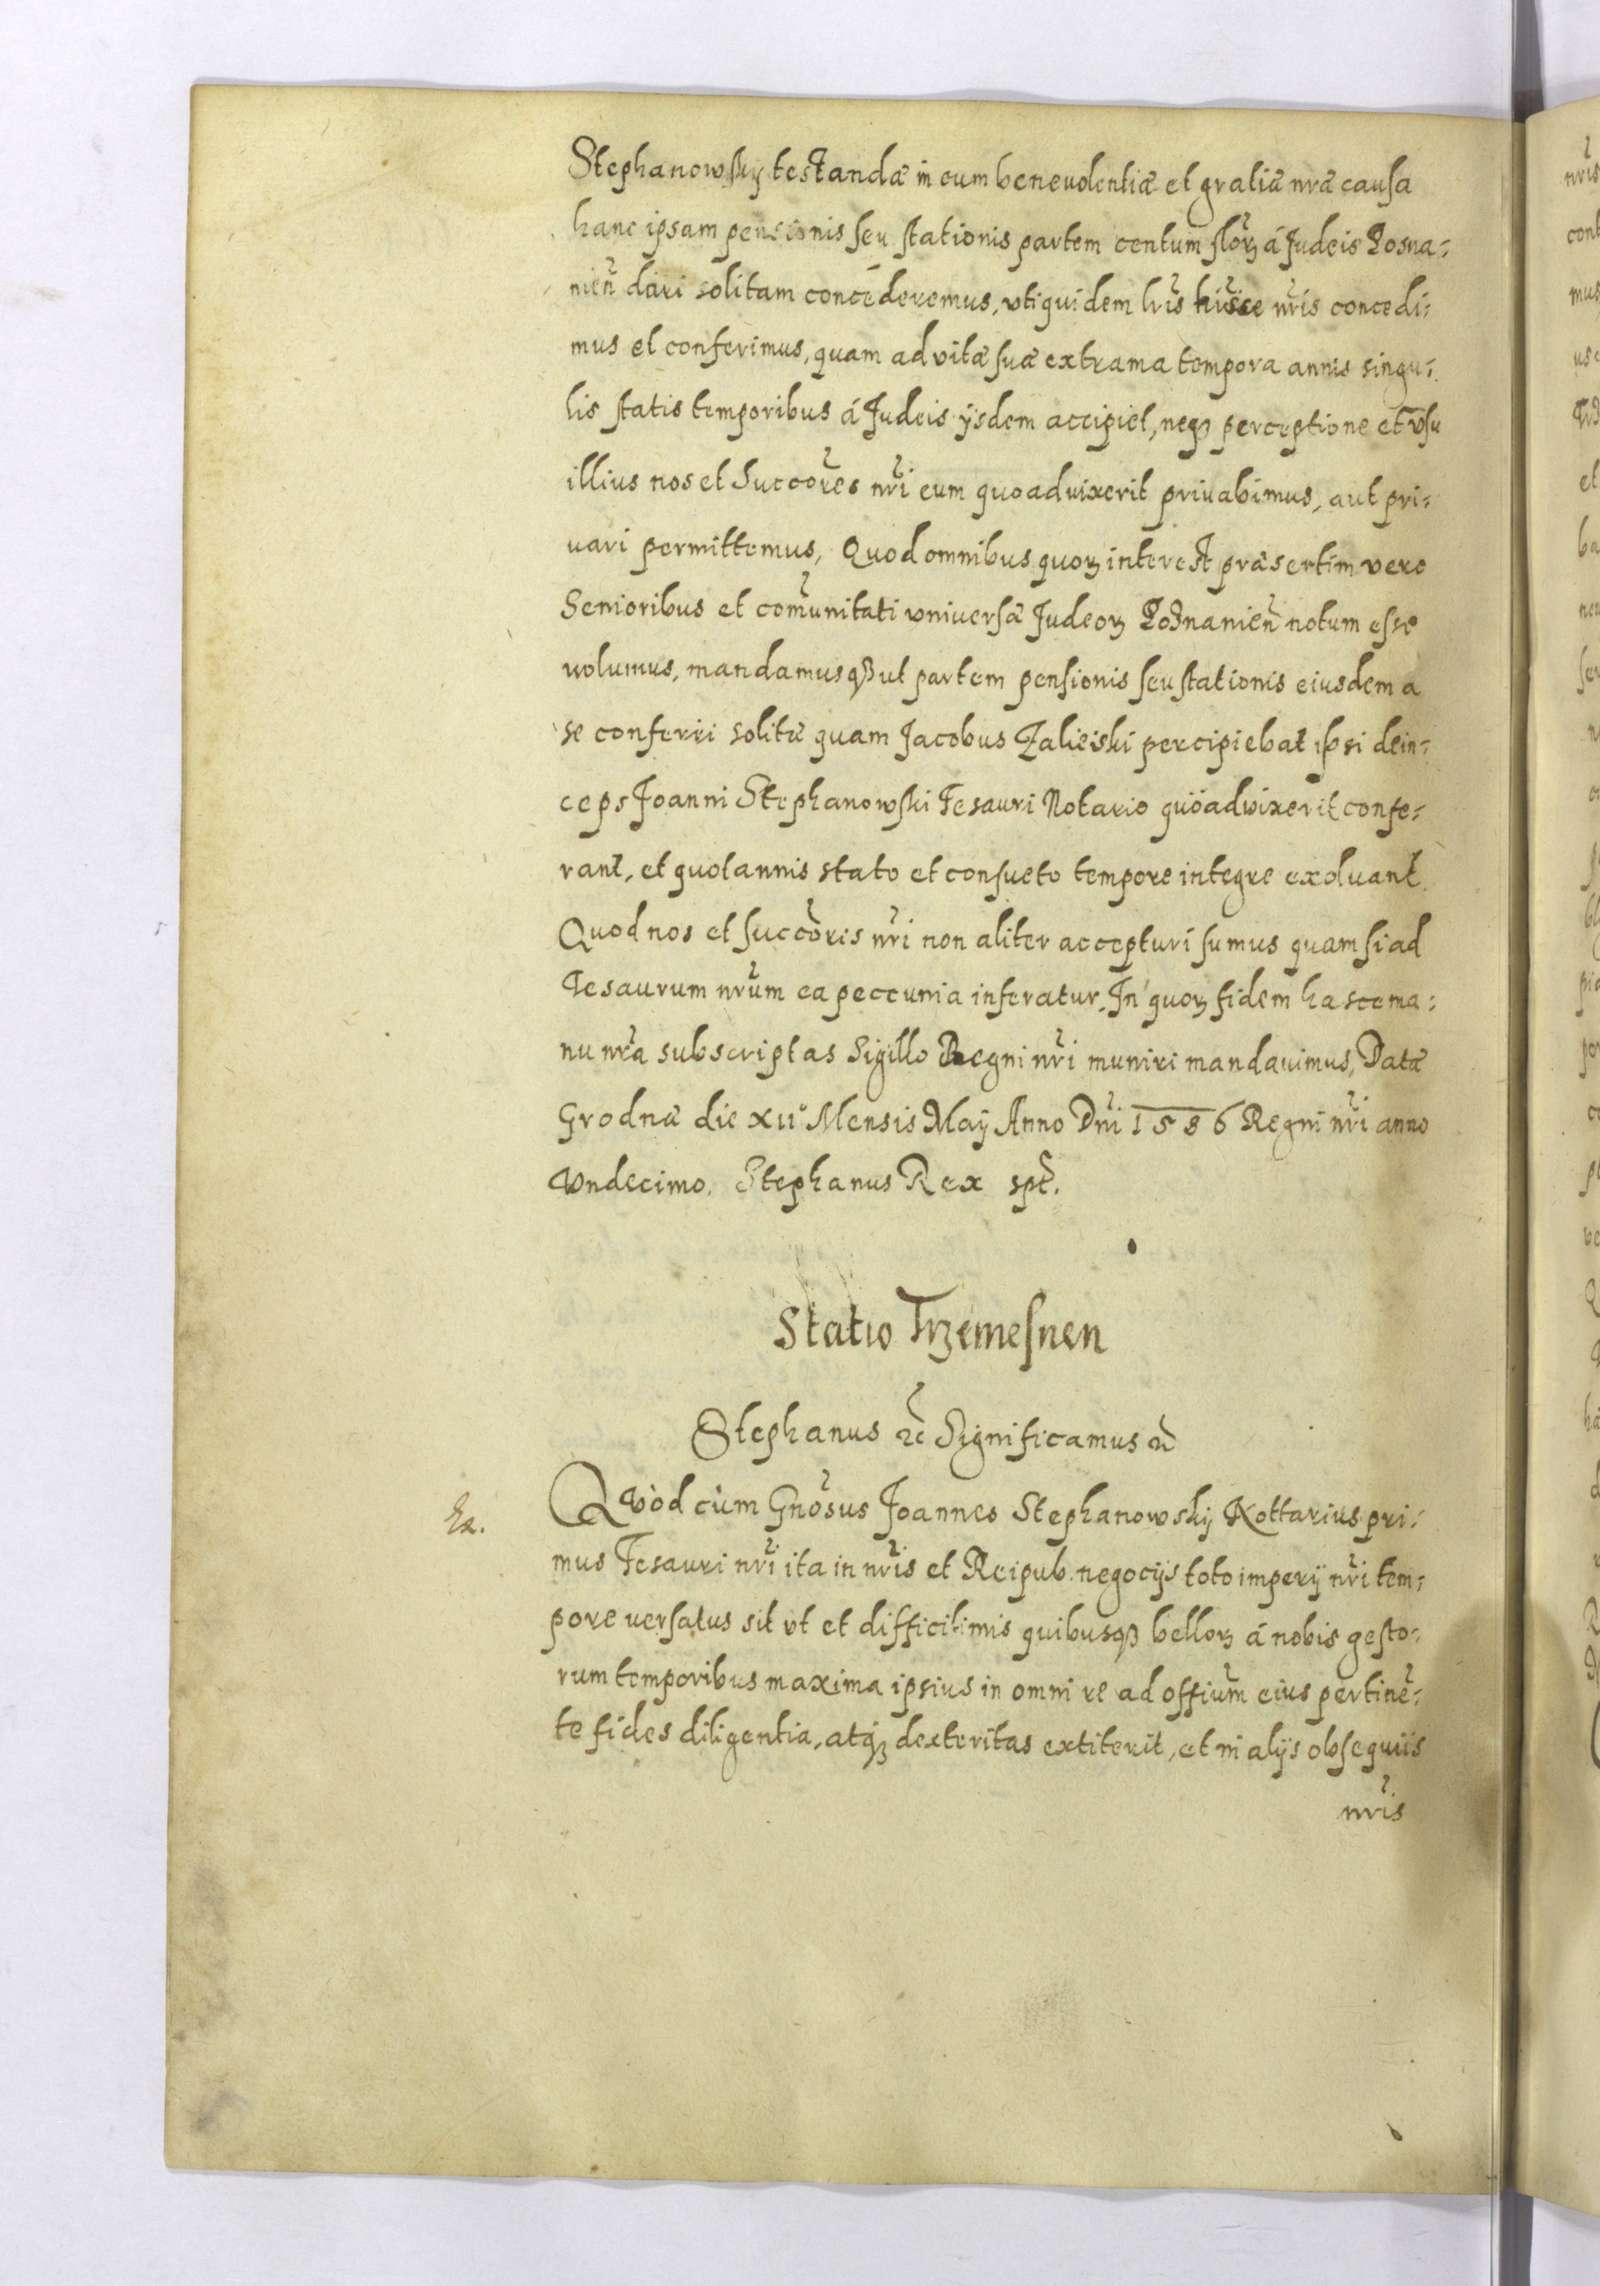 Stephanowskÿ testandæ in eum benevolentiæ et gratiæ nr̃æ causa
hanc ipsam pensionis seu stationis partem centum flor̃ꝫ á Judeis Posna-
nieñ dari solitam concederemus, vti quidem lr̃is hisce nr̃is concedi-
mus et conferimus, quam ad vitæ suæ extrama tempora annis singu-
lis statis temporibus á Judeis ÿsdem accipiet, neqꝫ perceptione et vsu
illius nos et Succor̃es nr̃i eum quoad vixerit priuabimus, aut pri-
uari permittemus, Quod omnibus quorꝫ interest præsertim vero
Senioribus et com̃unitati vniversæ Judeorꝫ Posnanieñ notum esse
volumus, mandamusqꝫ ut partem pensionis seu stationis eiusdem a
se conferri solitæ quam Jacobus Zalieski percipiebat ipsi dein-
ceps Joanni Stephanowski Tesauri Notario quoad vixerit confe-
rant, et quotannis stato et consueto tempore integre exoluant.
Quod nos et succor̃is nr̃i non aliter accepturi sumus quam si ad
Tesaurum nr̃um ea peccunia inferatur. In quorꝫ fidem hasce ma-
nu nr̃a subscriptas Sigillo Regni nr̃i muniri mandauimus, Datæ
Grodnæ die XII° Mensis Maÿ Anno Dn̄i 1586 Regni nr̃i anno
Vndecimo. Stephanus Rex spt̃.
Statio Trzemesnen
Stephanus ꝛc̃ Significamus ꝛc̃
Ex.
Quod cum Gnõsus Joannes Stephanowskÿ Nottarius pri-
mus Tesauri nr̃i ita in nr̃is et Reipub. negocÿs toto imperÿ nr̃i tem-
pore uersatus sit vt et difficilimis quibusqꝫ bellorꝫ á nobis gesto-
rum temporibus maxima ipsius in omni re ad offium̃ eius pertinẽ-
te fides diligentia, atqꝫ dexteritas extiterit, et in alÿs obsequiis
nr̃is